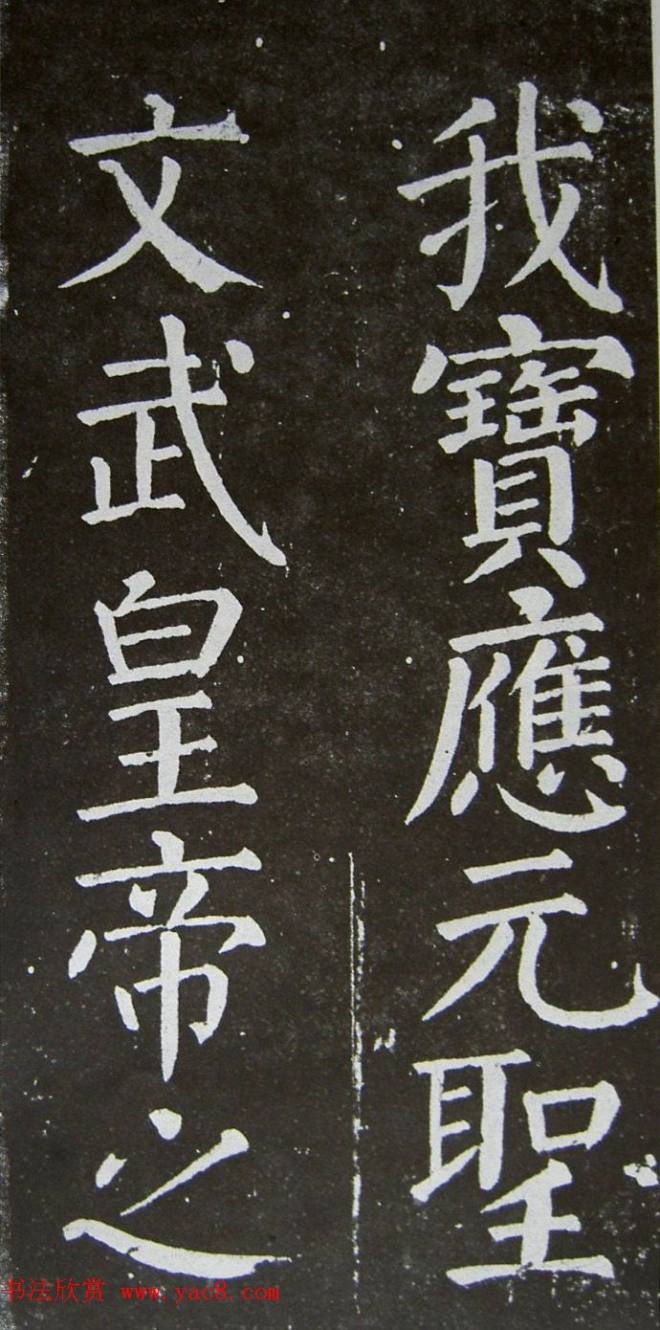 我寶應元聖
文武皇帝之
书法欣赏 www.yac8.com